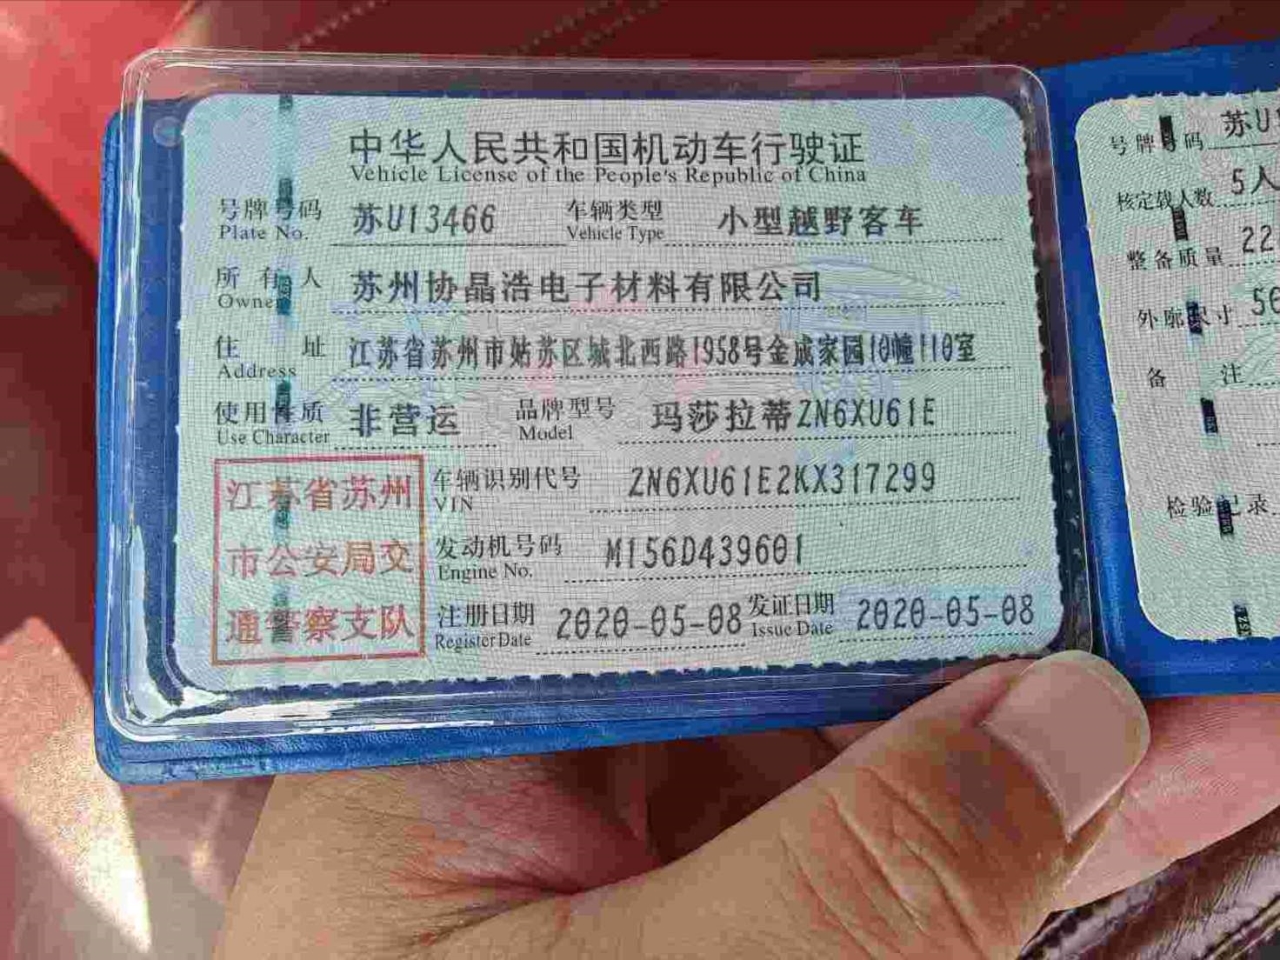 中华人民共和国机动车行驶证
Vehicle License of the People's Republic of China
号牌号码 苏U13466 车辆类型 小型越野客车
Plate No. Vehicle Type
所有人 苏州协晶浩电子材料有限公司
Owner
住址 江苏省苏州市姑苏区城北西路1958号金成家园10幢110室
Address
使用性质 非营运 品牌型号 玛莎拉蒂ZN6XU61E
Use Character Model
江苏省苏州
市公安局交
通警察支队
车辆识别代号 ZN6XU61E2KX317299
VIN
发动机号码 M156D439601
Engine No.
注册日期 2020-05-08 发证日期 2020-05-08
Register Date Issue Date
号牌号码 苏U1
核定载人数 5人
整备质量 22
外廓尺寸 50
备注
检验记录